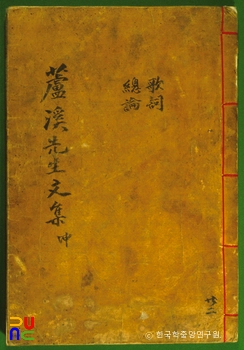 蘆溪先生文集 坤
歌詞
總論
共二
© 한국학중앙연구원